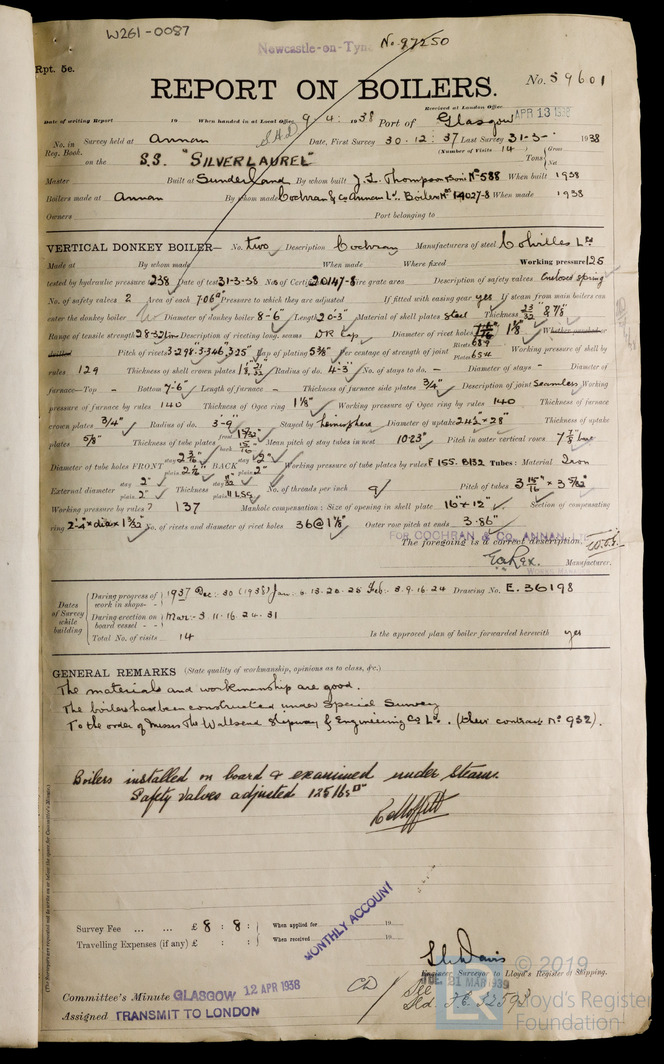 W261-0087
Newcastle-on-Tyne No. 97250
Rpt. 5e.
REPORT ON BOILERS.
No. 59601
Received at London Office APR 13 1938
Date of writing Report 19 When handed in at Local Office 9.4. 1938 Port of Glasgow
No. in Reg. Book. Survey held at Annan Date, First Survey 30.12.37 Last Survey 31-3- 1938
on the S.S. "SILVERLAUREL" (Number of Visits 14) Tons Gross Net
Master Built at Sunderland By whom built J. L. Thompson & Sons No. 588 When built 1938
Boilers made at Annan By whom made Cochran & Co Annan Ld. Boiler Nos 14027-8 When made 1938
Owners Port belonging to
VERTICAL DONKEY BOILER— No. two Description Cochran Manufacturers of steel Colvilles Ld
Made at By whom made When made Where fixed Working pressure 125
tested by hydraulic pressure 238 Date of test 31-3-38 No. of Certif. 20147-8 Fire grate area Description of safety valves Enclosed spring
No. of safety valves 2 Area of each 7.06" Pressure to which they are adjusted If fitted with easing gear yes If steam from main boilers can
enter the donkey boiler Diameter of donkey boiler 8'-6" Length 20'-3" Material of shell plates Steel Thickness 23/32 & 7/8"
Range of tensile strength 28-32 tons Description of riveting long. seams DR Lap Diameter of rivet holes 1 1/8" Whether punched or
drilled Pitch of rivets 3.298-3.346, 3.25" Lap of plating 5 3/8" Per centage of strength of joint Rivets 68.9 Plates 65.4 Working pressure of shell by
rules 129 Thickness of shell crown plates Radius of do. 4'-3" No. of stays to do. - Diameter of stays - Diameter of
furnace—Top - Bottom 7'-6" Length of furnace - Thickness of furnace side plates 3/4" Description of joint Seamless Working
pressure of furnace by rules 140 Thickness of Ogee ring 1 1/8" Working pressure of Ogee ring by rules 140 Thickness of furnace
crown plates 3/4" Radius of do. 3'-9" Stayed by hemisphere Diameter of uptake 24 1/2" x 28" Thickness of uptake
plates 5/8" Thickness of tube plates front back 15/16" Mean pitch of stay tubes in nest 10.23" Pitch in outer vertical rows 7 7/8"
Diameter of tube holes FRONT stay 2 3/16" plain 2 1/16" BACK stay 2" plain 2" Working pressure of tube plates by rules F 155. B 132 Tubes: Material Iron
External diameter stay 2" plain 2" Thickness stay plain 11 LSG No. of threads per inch 9 Pitch of tubes 3 15/16" x 3 5/32"
Working pressure by rules ? 137 Manhole compensation: Size of opening in shell plate 16" x 12" Section of compensating
ring No. of rivets and diameter of rivet holes 36 @ 1 1/8" Outer row pitch at ends 3.86"
FOR COCHRAN & Co. ANNAN, LTD
The foregoing is a correct description,
WORKS MANAGER Manufacturer.
Dates of Survey while building
During progress of work in shops - - 1937 Dec:- 30 (1938) Jan:- 6.13.20.25 Feb:- 3.9.16.24 Drawing No. E.36198
During erection on board vessel - - Mar:- 3.11.16.24.31
Total No. of visits 14 Is the approved plan of boiler forwarded herewith yes
GENERAL REMARKS (State quality of workmanship, opinions as to class, &c.)
The materials and workmanship are good.
The boilers have been constructed under Special Survey
To the order of Messrs The Wallsend Slipway & Engineering Co Ld. (their contract No 932).
Boilers installed on board & examined under steam.
Safety Valves adjusted 125 lbs
Survey Fee ... ... £ 8 : 8 : When applied for 19
Travelling Expenses (if any) £ : : When received 19
MONTHLY ACCOUNT
Engineer Surveyor to Lloyd's Register of Shipping.
© 2019
Lloyd's Register
Foundation
TUE. 21 MAR 1939
Committee's Minute GLASGOW 12 APR 1938
Assigned TRANSMIT TO LONDON